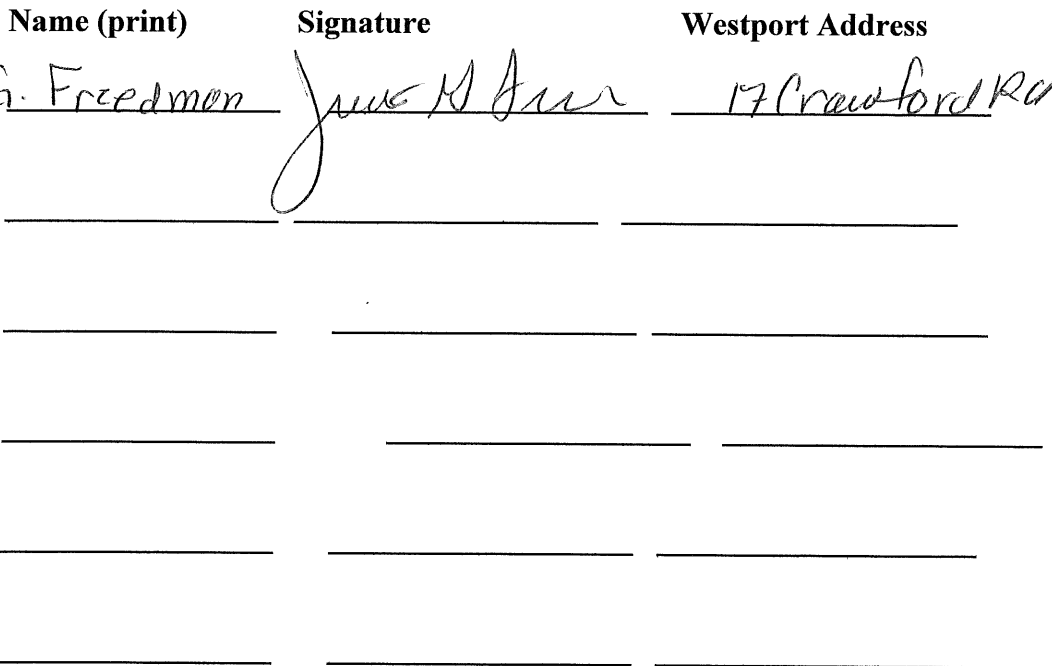 Name (print) Signature Westport Address
G. Freedman 17 Crawford Rd